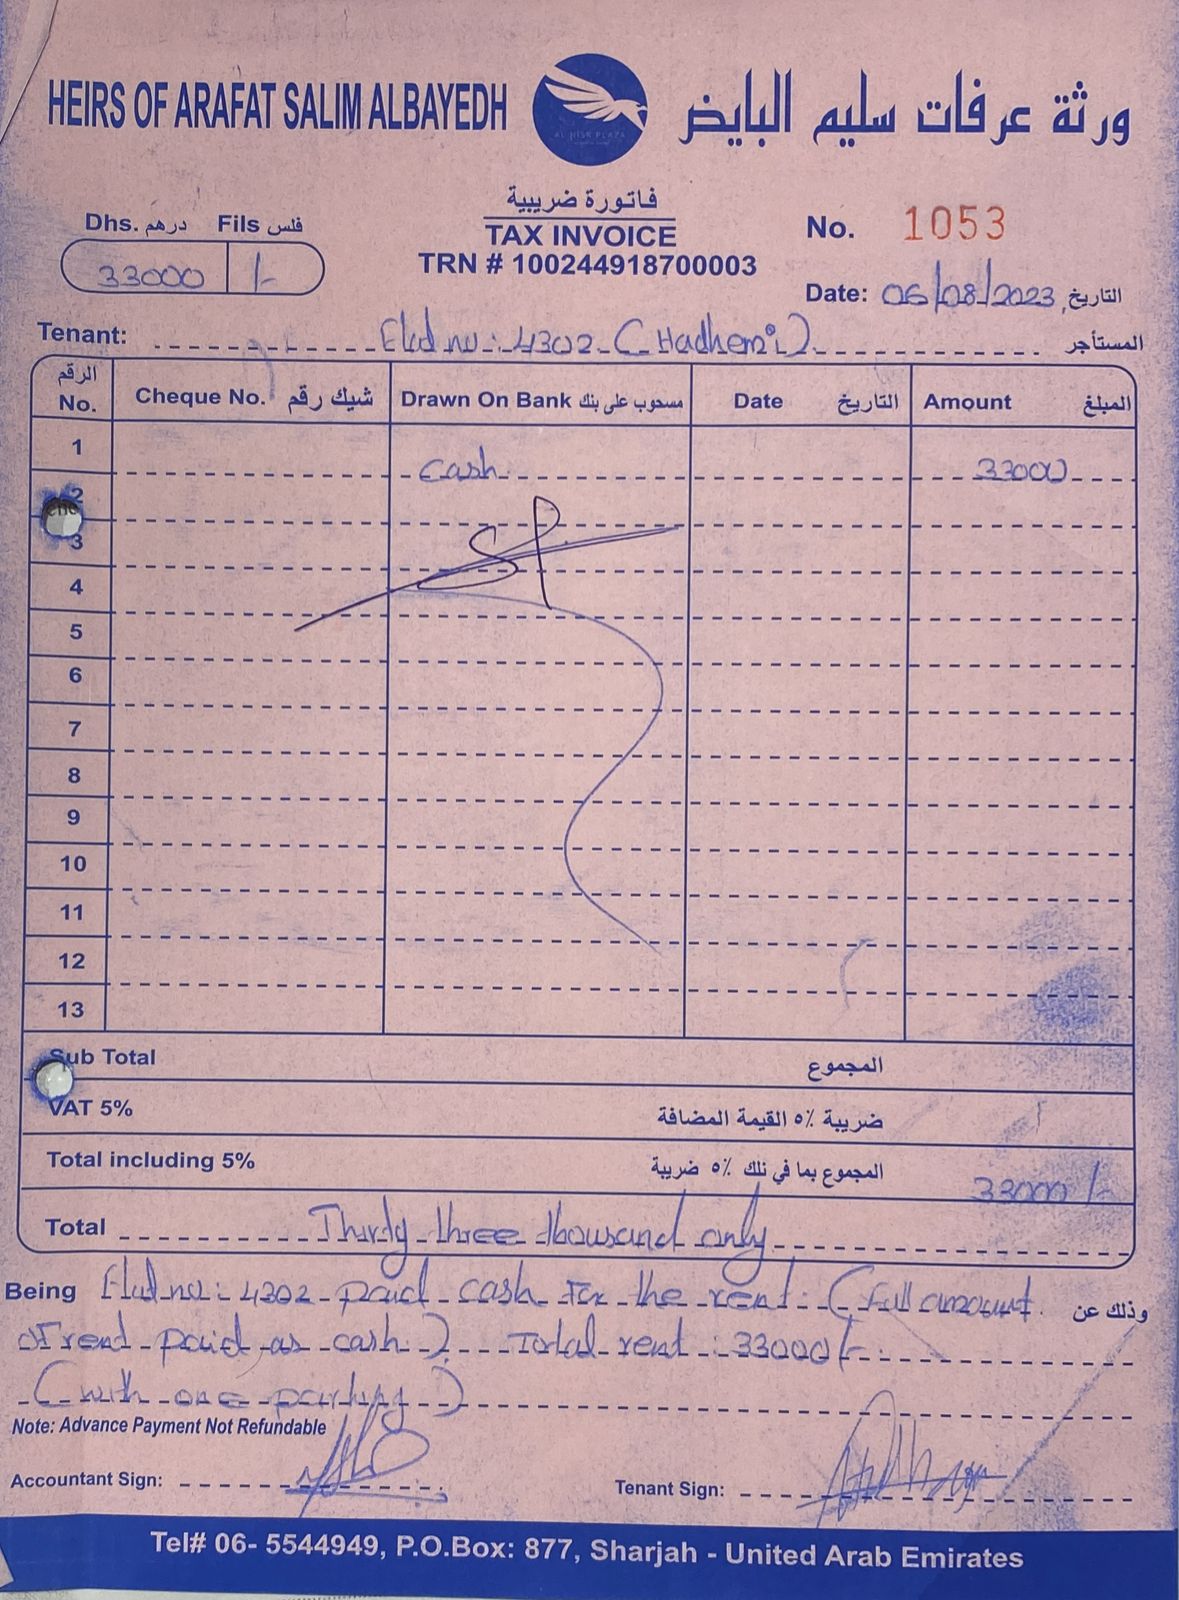 HEIRS OF ARAFAT SALIM ALBAYEDH
ورثة عرفات سليم البايض
AL HISN PLAZA
فاتورة ضريبية
TAX INVOICE
TRN # 100244918700003
Dhs. درهم Fils فلس
33000 /-
No. 1053
Date: 06/08/2023 التاريخ
Tenant: Flat no: 4302 (Hadhemi) المستأجر
الرقم No. Cheque No. شيك رقم Drawn On Bank مسحوب على بنك Date التاريخ Amount المبلغ
1 Cash 33000
2
3
4
5
6
7
8
9
10
11
12
13
Sub Total المجموع
VAT 5% ضريبة ٥٪ القيمة المضافة
Total including 5% المجموع بما في تلك ٥٪ ضريبة 33000/-
Total Thirty three thousand only
Being Flat no: 4302 paid cash for the rent. (full amount وذلك عن
of rent paid as cash). Total rent: 33000/-
(with one parking)
Note: Advance Payment Not Refundable
Accountant Sign:
Tenant Sign:
Tel# 06- 5544949, P.O.Box: 877, Sharjah - United Arab Emirates